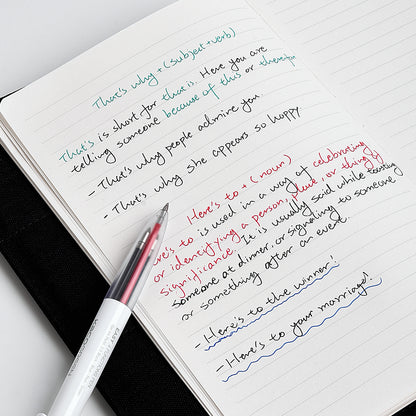 That's why + (subject+verb)
That's is short for that is. Here you are
telling someone because of this or therefore
- That's why people admire you.
- That's why she appears so happy
Here's to + (noun)
Here's to is used in a way of celebrating
or identifying a person, place, or thing of
significance. It is usually said while toasting
someone at dinner, or signaling to someone
or something after an event.
- Here's to the winner!
- Here's to your marriage!